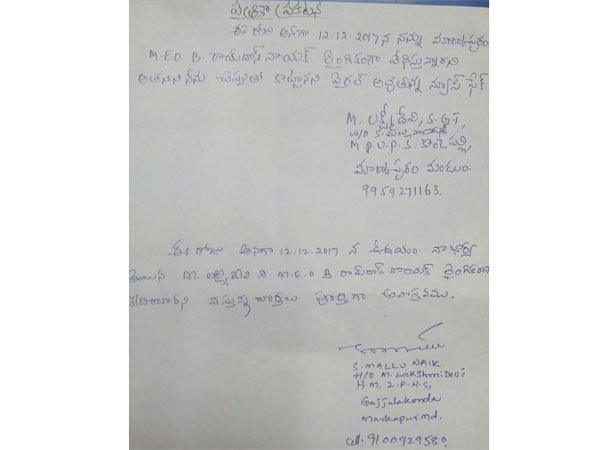 పత్రికా ప్రకటన
ఈ రోజు అనగా 12.12.2017 న నన్ను మార్కాపురం
M.E.O B. రాందాస్ నాయక్ లైంగికంగా వేధిస్తున్నారని
అతనిని నేను చెప్పుతో కొట్టానని వైరల్ అవుతున్న న్యూస్ ఫేక్
M. లక్ష్మీ దేవి, S.G.T,
W/O S. మల్లు నాయక్
M.P.U.P.S. కొండేపల్లి,
మార్కాపురం మండలం.
9959271163.
ఈ రోజు అనగా 12.12.2017 న ఉదయం నా భార్య
అయిన M. లక్ష్మీ దేవి ని M.E.O B. రాందాస్ నాయక్ లైంగికంగా
వేధించారని వస్తున్న వార్తలు పూర్తిగా అవాస్తవము.
S. MALLU NAIK
H/O M. Lakshmi Devi
H.M, Z.P.H.S,
Gajjalakonda
Markapur Md.
Cell: 9100929580